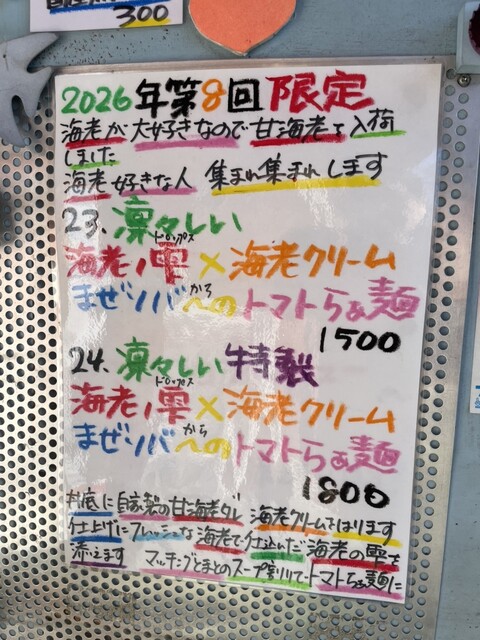 300
2026年第8回限定
海老が大好きなので甘海老を入荷
しました
海老好きな人 集まれ集まれします
23. 凛々しい
ドロップス
海老ノ雫×海老クリーム
まぜソバからへのトマトらぁ麺
1500
24. 凛々しい特製
ドロップス
海老ノ雫×海老クリーム
まぜソバからへのトマトらぁ麺
1800
丼底に自家製の甘海老ダレ 海老クリームをはります
仕上げにフレッシュな海老で仕込んだ海老の雫を
添えます マッチングとまとのスープ割りにてトマトらぁ麺に